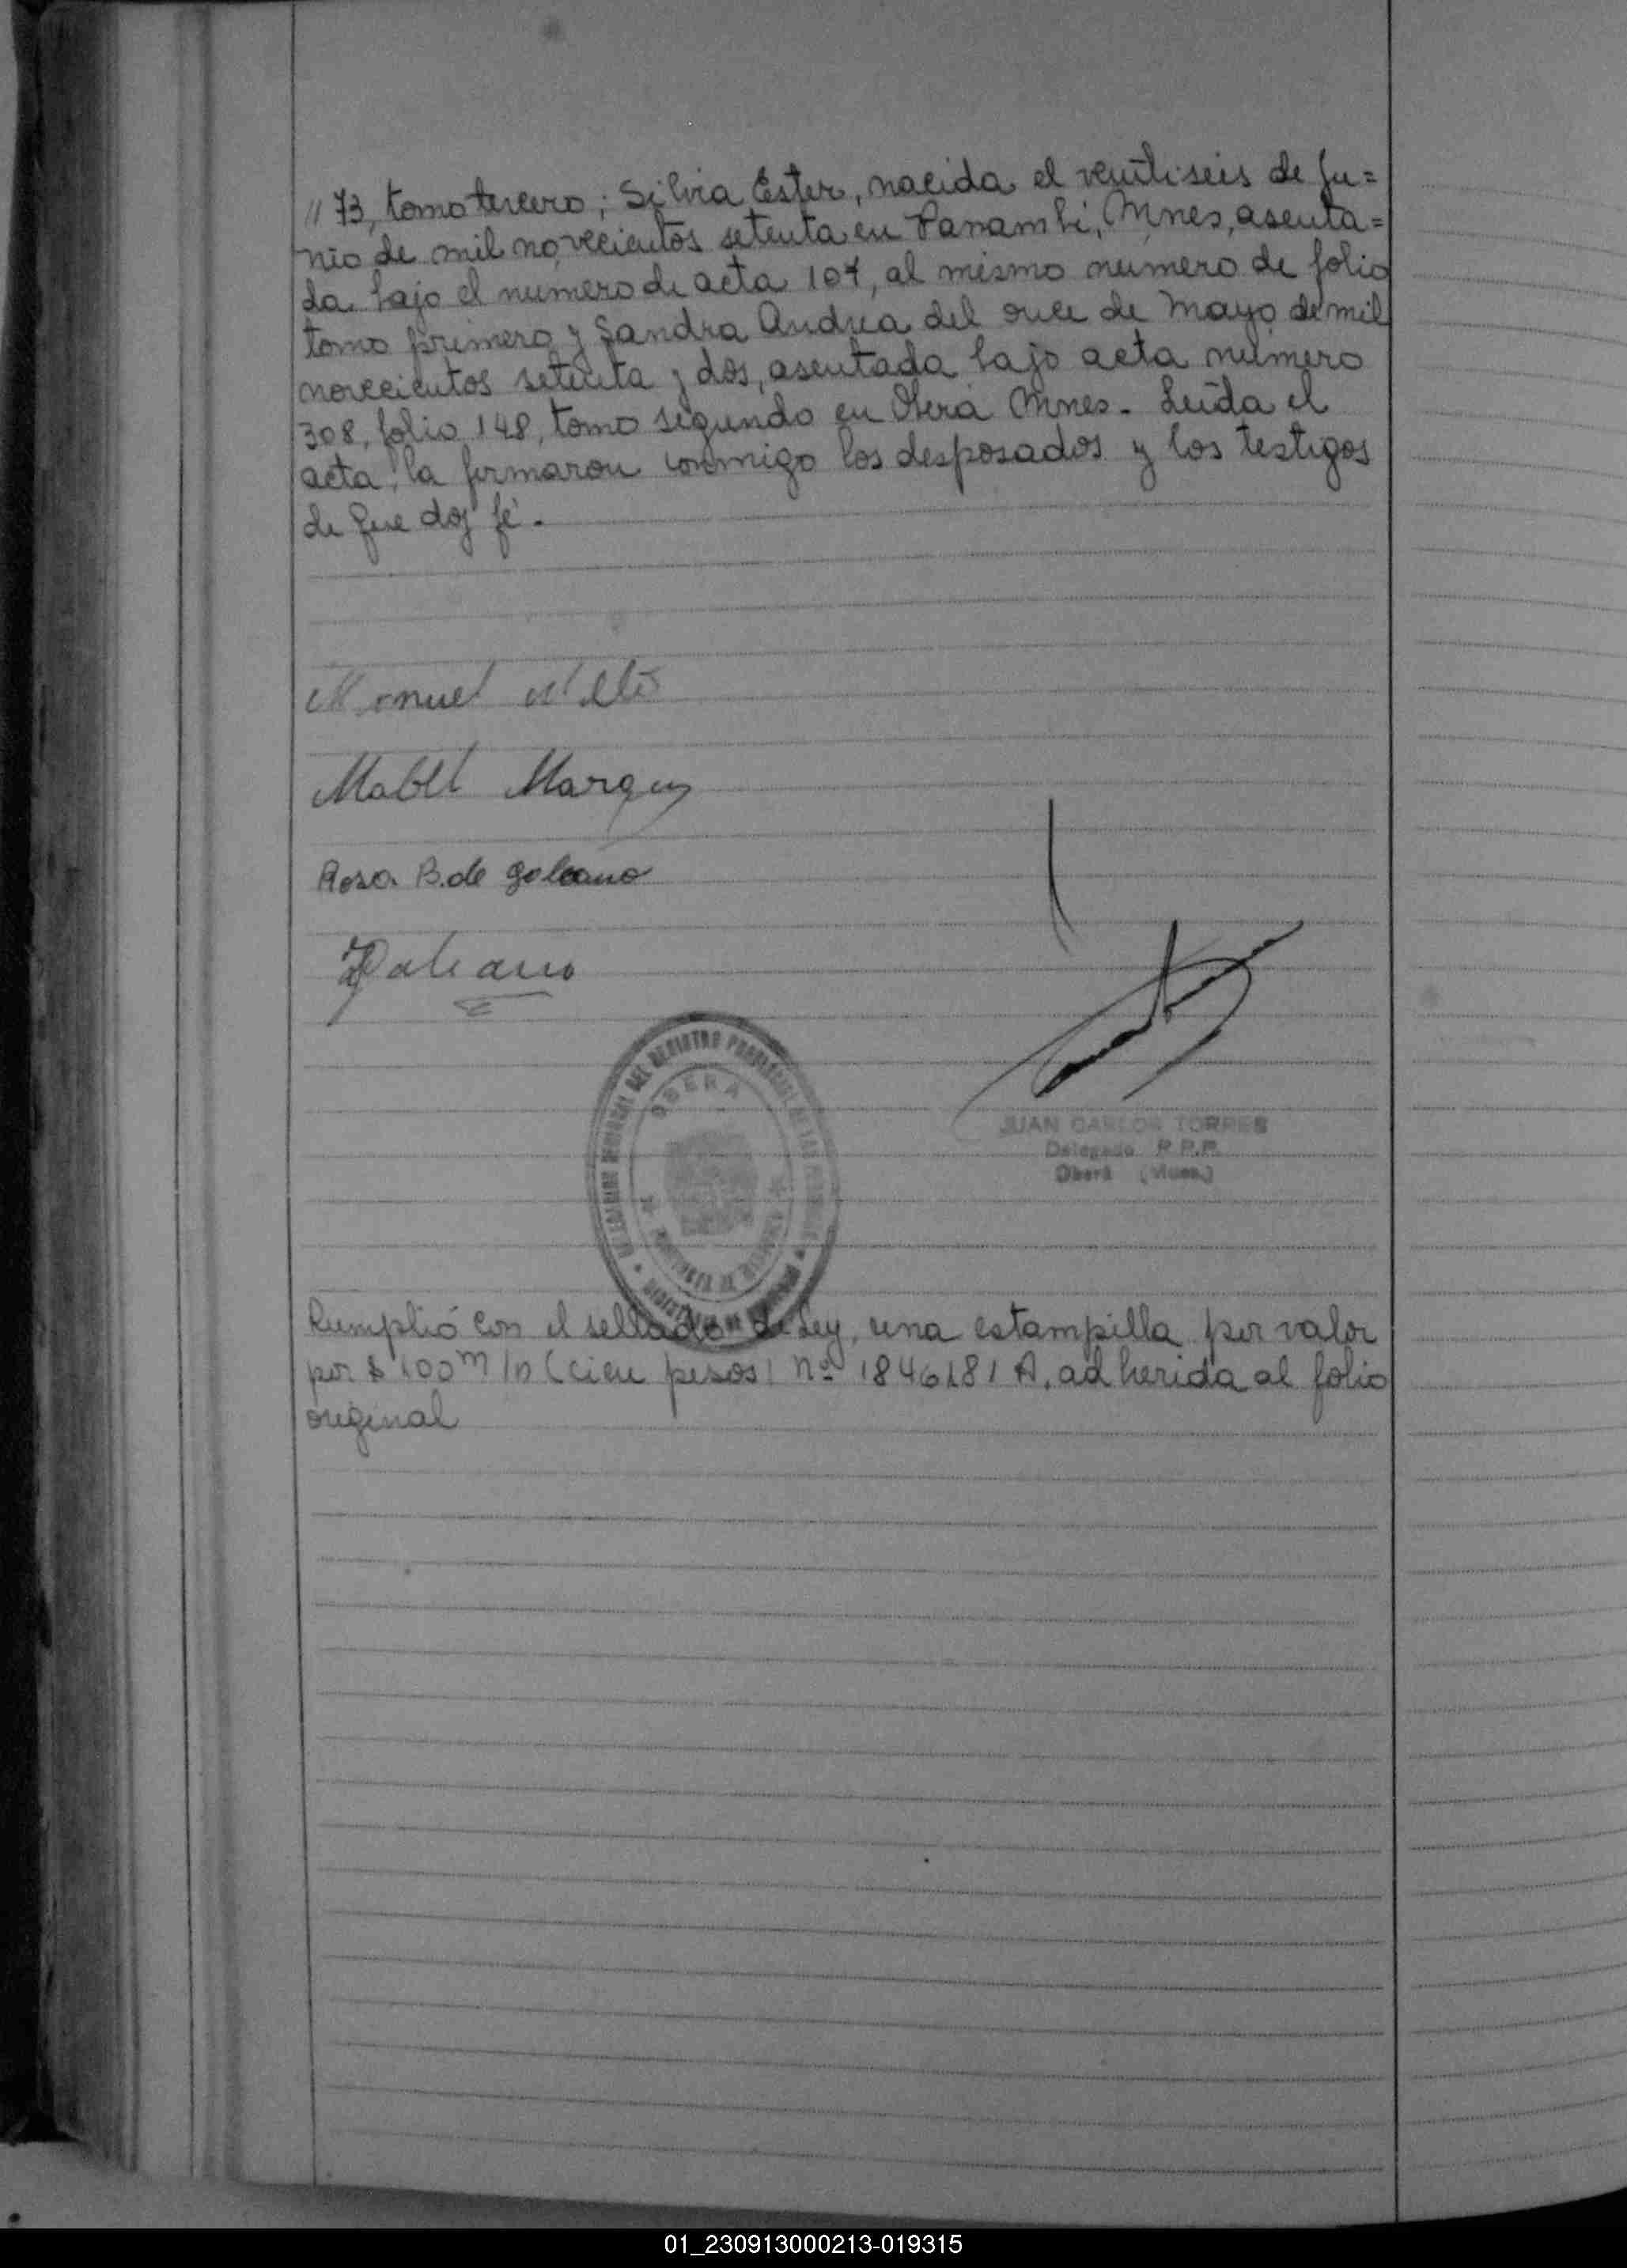 // 73, tomo tercero; Silvia Ester, nacida el veintiseis de Ju=
nio de mil novecientos setenta en Panambi, Mnes, asenta=
da bajo el numero de acta 107, al mismo numero de folio
tomo primero y Sandra Andrea del once de Mayo de mil
novecientos setenta y dos, asentada bajo acta número
308, folio 148, tomo segundo en Oberá Mnes. Leída el
acta, la firmaron conmigo los desposados y los testigos
de que doy fé.
Manuel
Mabel Marquez
Rosa B. de Galeano
Galeano
DEL REGISTRO PROVINCIAL DE LAS PERSONAS
OBERA
PROVINCIA DE MISIONES
JUAN CARLOS TORRES
Delegado R.P.P.
Oberá (Mnes.)
Cumplió con el sellado de Ley, una estampilla por valor
por $ 100 m/n (cien pesos) nº 1846181 A, adherida al folio
original
01_230913000213-019315